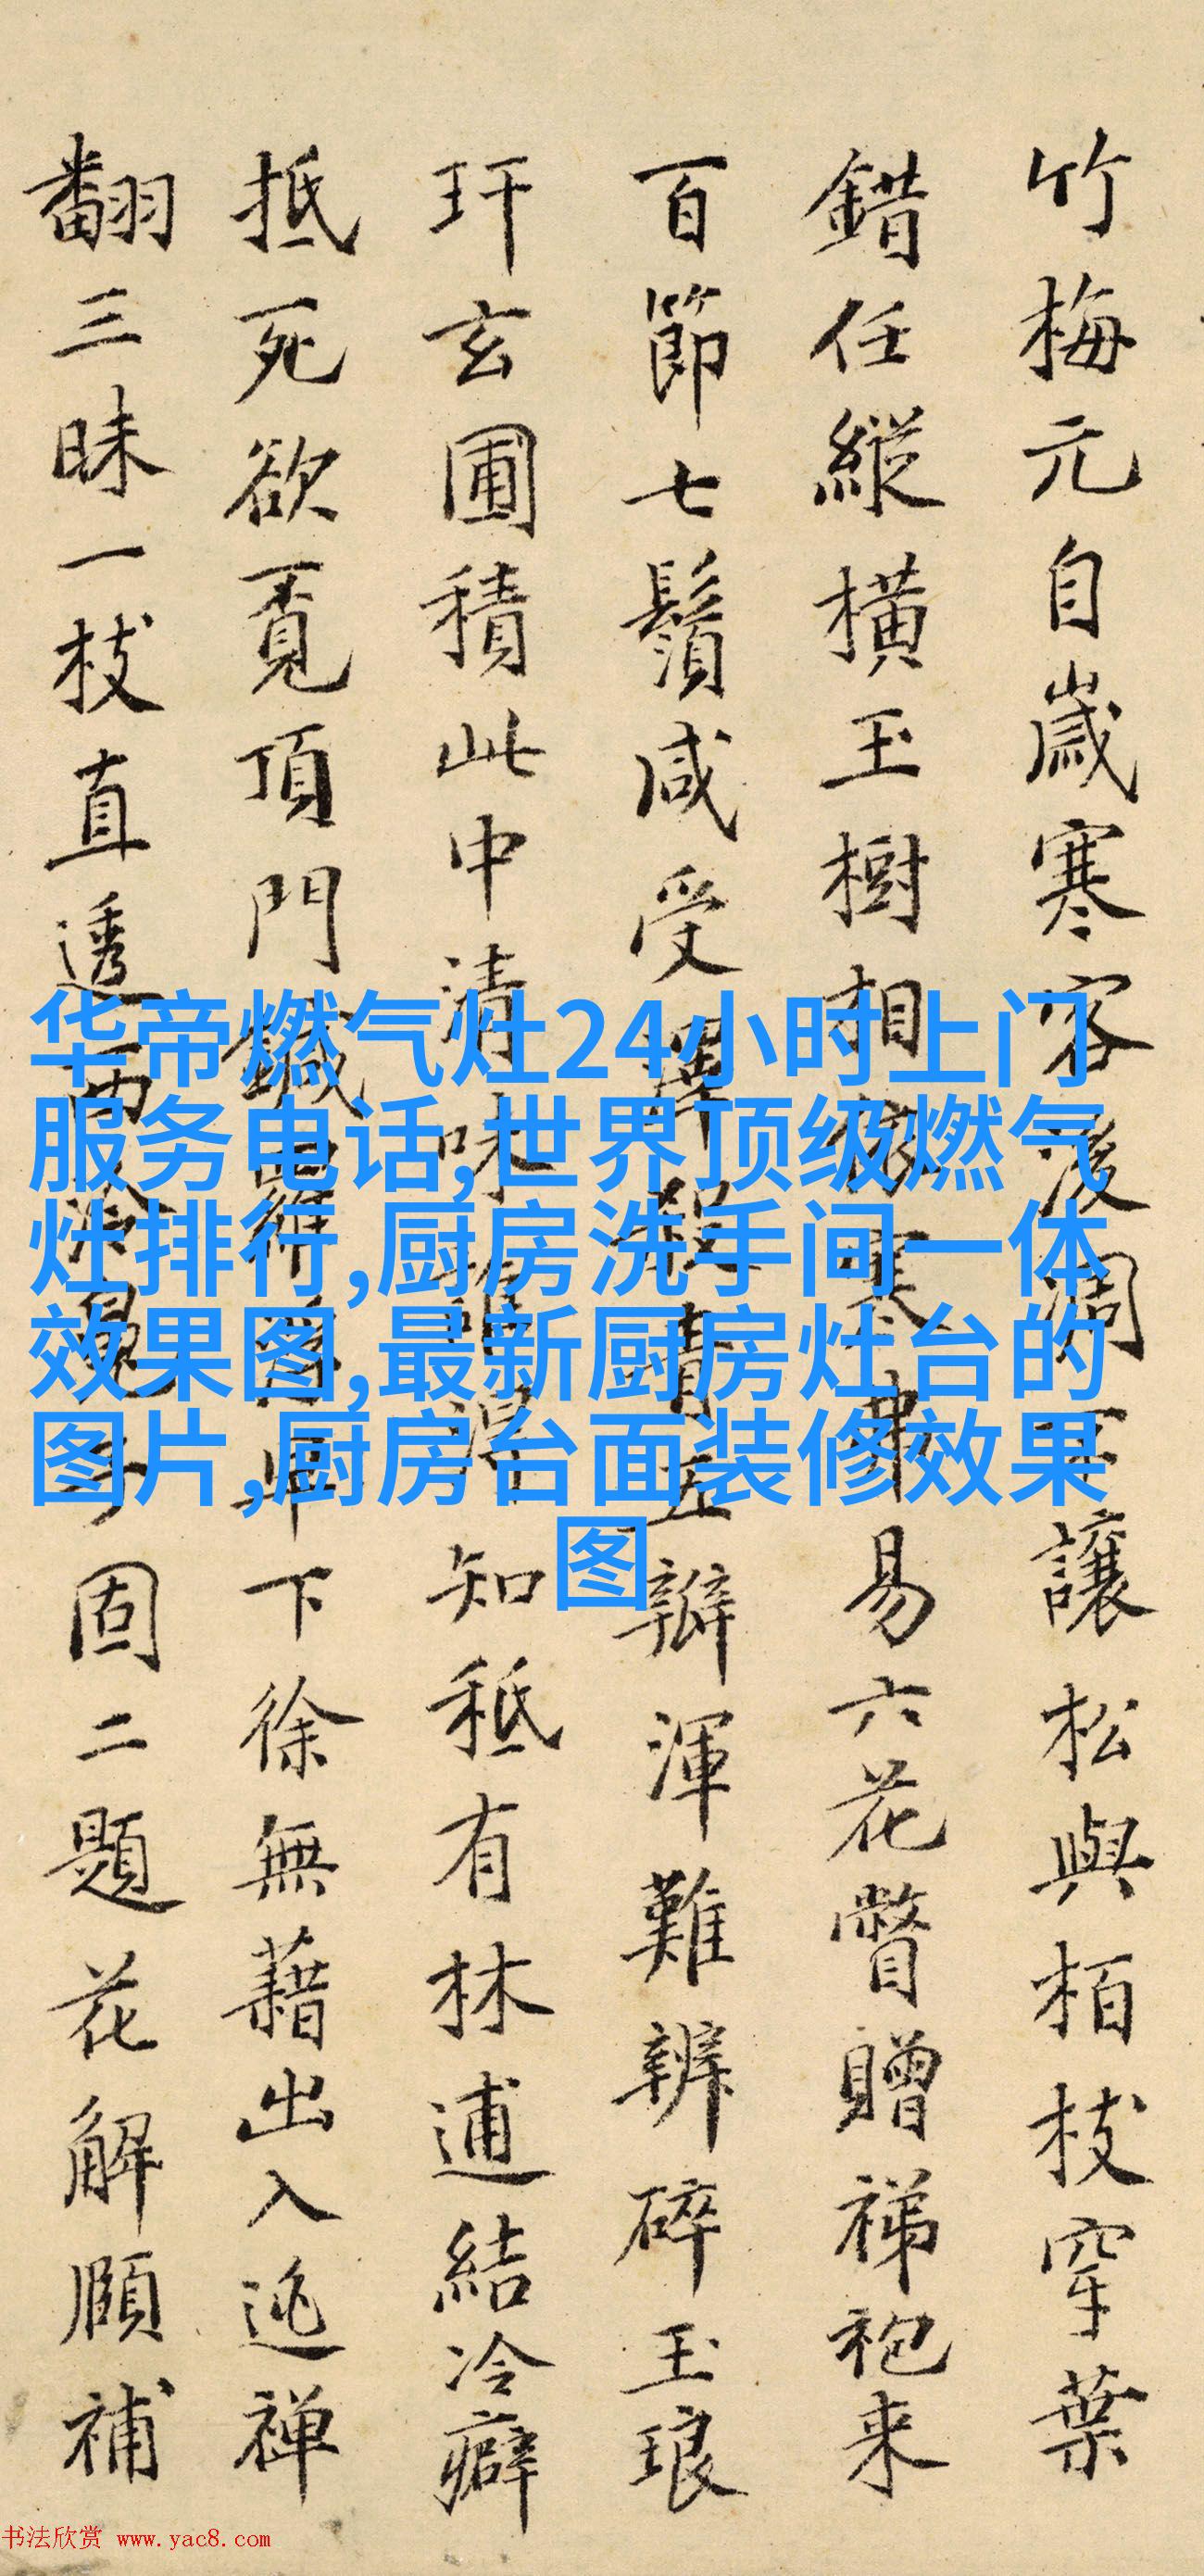 竹梅元自歲寒容後凋不讓松與栢枝穿葉
錯任縱橫玉樹相寒肅易六花瞥贈祶袍来
百節七鬚咸受五瓣渾難辨碎玉琅
玕玄圃積此中清味誰得知秪有林逋結冷癖
抵死欲覔頂門鍼羅浮下徐無藉出入逃禅
翻三昧一枝直透固二題花解頤補
华帝燃气灶24小时上门
服务电话,世界顶级燃气
灶排行,厨房洗手间一体
效果图,最新厨房灶台的
图片,厨房台面装修效果
图
书法欣赏 www.yac8.com